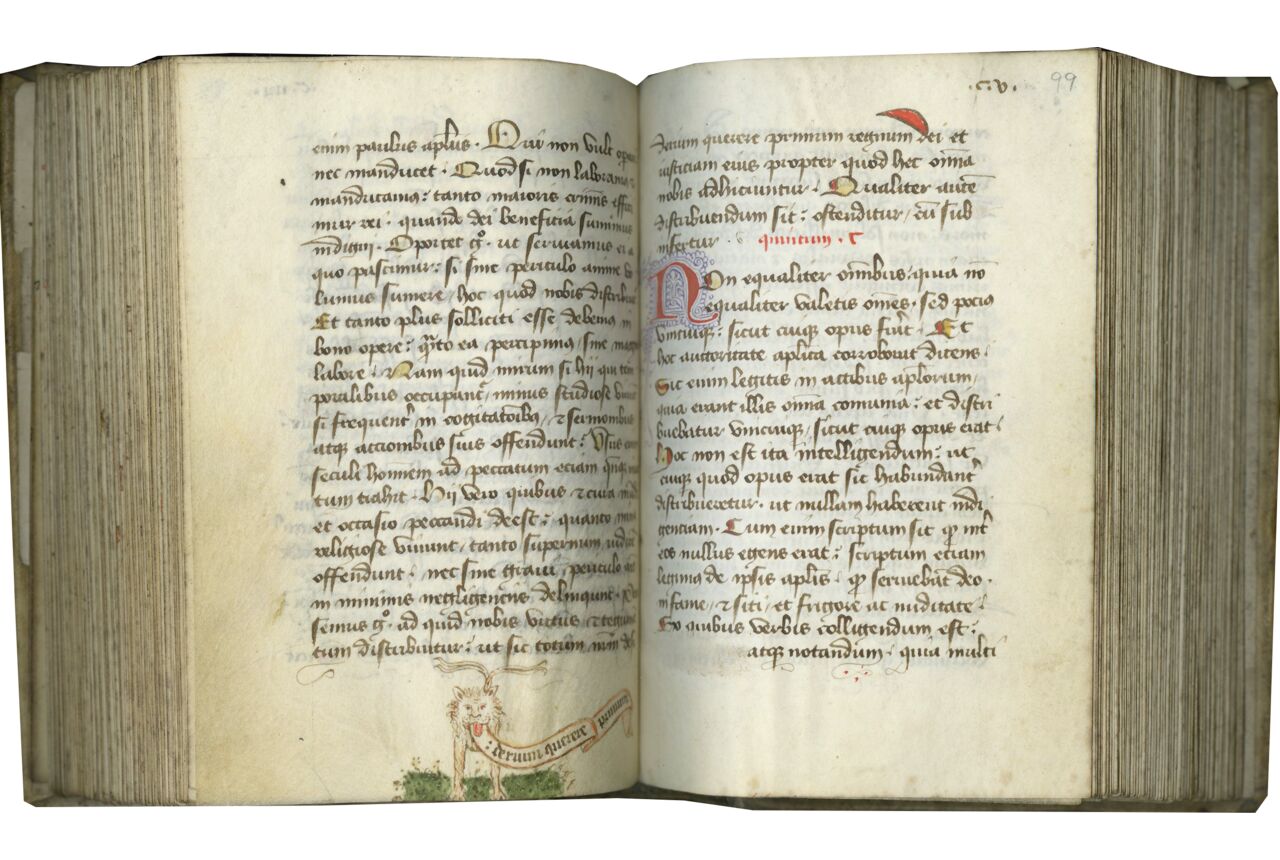 enim paribus apl̄us · Qui non vult
nec manducet · Quod si non
manducamus : tanto maioris cr̄inis
mur rei · quando dei beneficia sumimus
indigni · Oportet gͦ · ut seruiamus
quo pascimur : si sine periculo anime
lumus sumere / hoc quod nobis
Et tanto plus solliciti esse debemus in
bono opere : sine
labore · Nam quid mirum si hii qui
poralibus minus studiose
si in et sermonibus
atq accionibus suis offendunt : Usus
seculi hominem ad peccatum eciam
tum trahit · Hii vero quibus et cura
et occasio peccandi deest : quanto
religiose viuunt / tanto supernum
offendunt · nec sine graui periculo
in minimis negligencijs delinquunt ·
semus gͦ · ad quid nobis victus et
tum distribuitur : ut sic totum
: terium querere primum
·c·v· 99
terium querere primum regnum dei et
iusticiam eius propter quod hec oīnia
nobis adiiciuntur · Qualiter autē
distribuendum sit : ostenditur / cū sub
infertur · quintum · c
Non equaliter oīnibus / quia nō
equaliter valetis oēs · sed pocius
vnicuiqꝫ : sicut cuiqꝫ opus fuīt · Et
hoc auctoritate aplica corroborat dicens :
Sic enim legitis in actibus apl̄orum /
quia erant illis oīnia comunia : et distri
buebatur vnicuiqꝫ / sicut cuiqꝫ opus erat :
Hoc non est ita intelligendum : ut
cuiqꝫ quod opus erat sic habundant̄
distribueretur · ut nullam haberent indi
genciam · Cum enim scriptum sit int̄
eos nullus egens erat : scriptum eciam
legimus de ipsis apl̄is · seruiebāt deo ·
in fame / et siti / et frigore ac nuditate :
Ex quibus verbis colligendum est :
atqꝫ notandum · quia multi